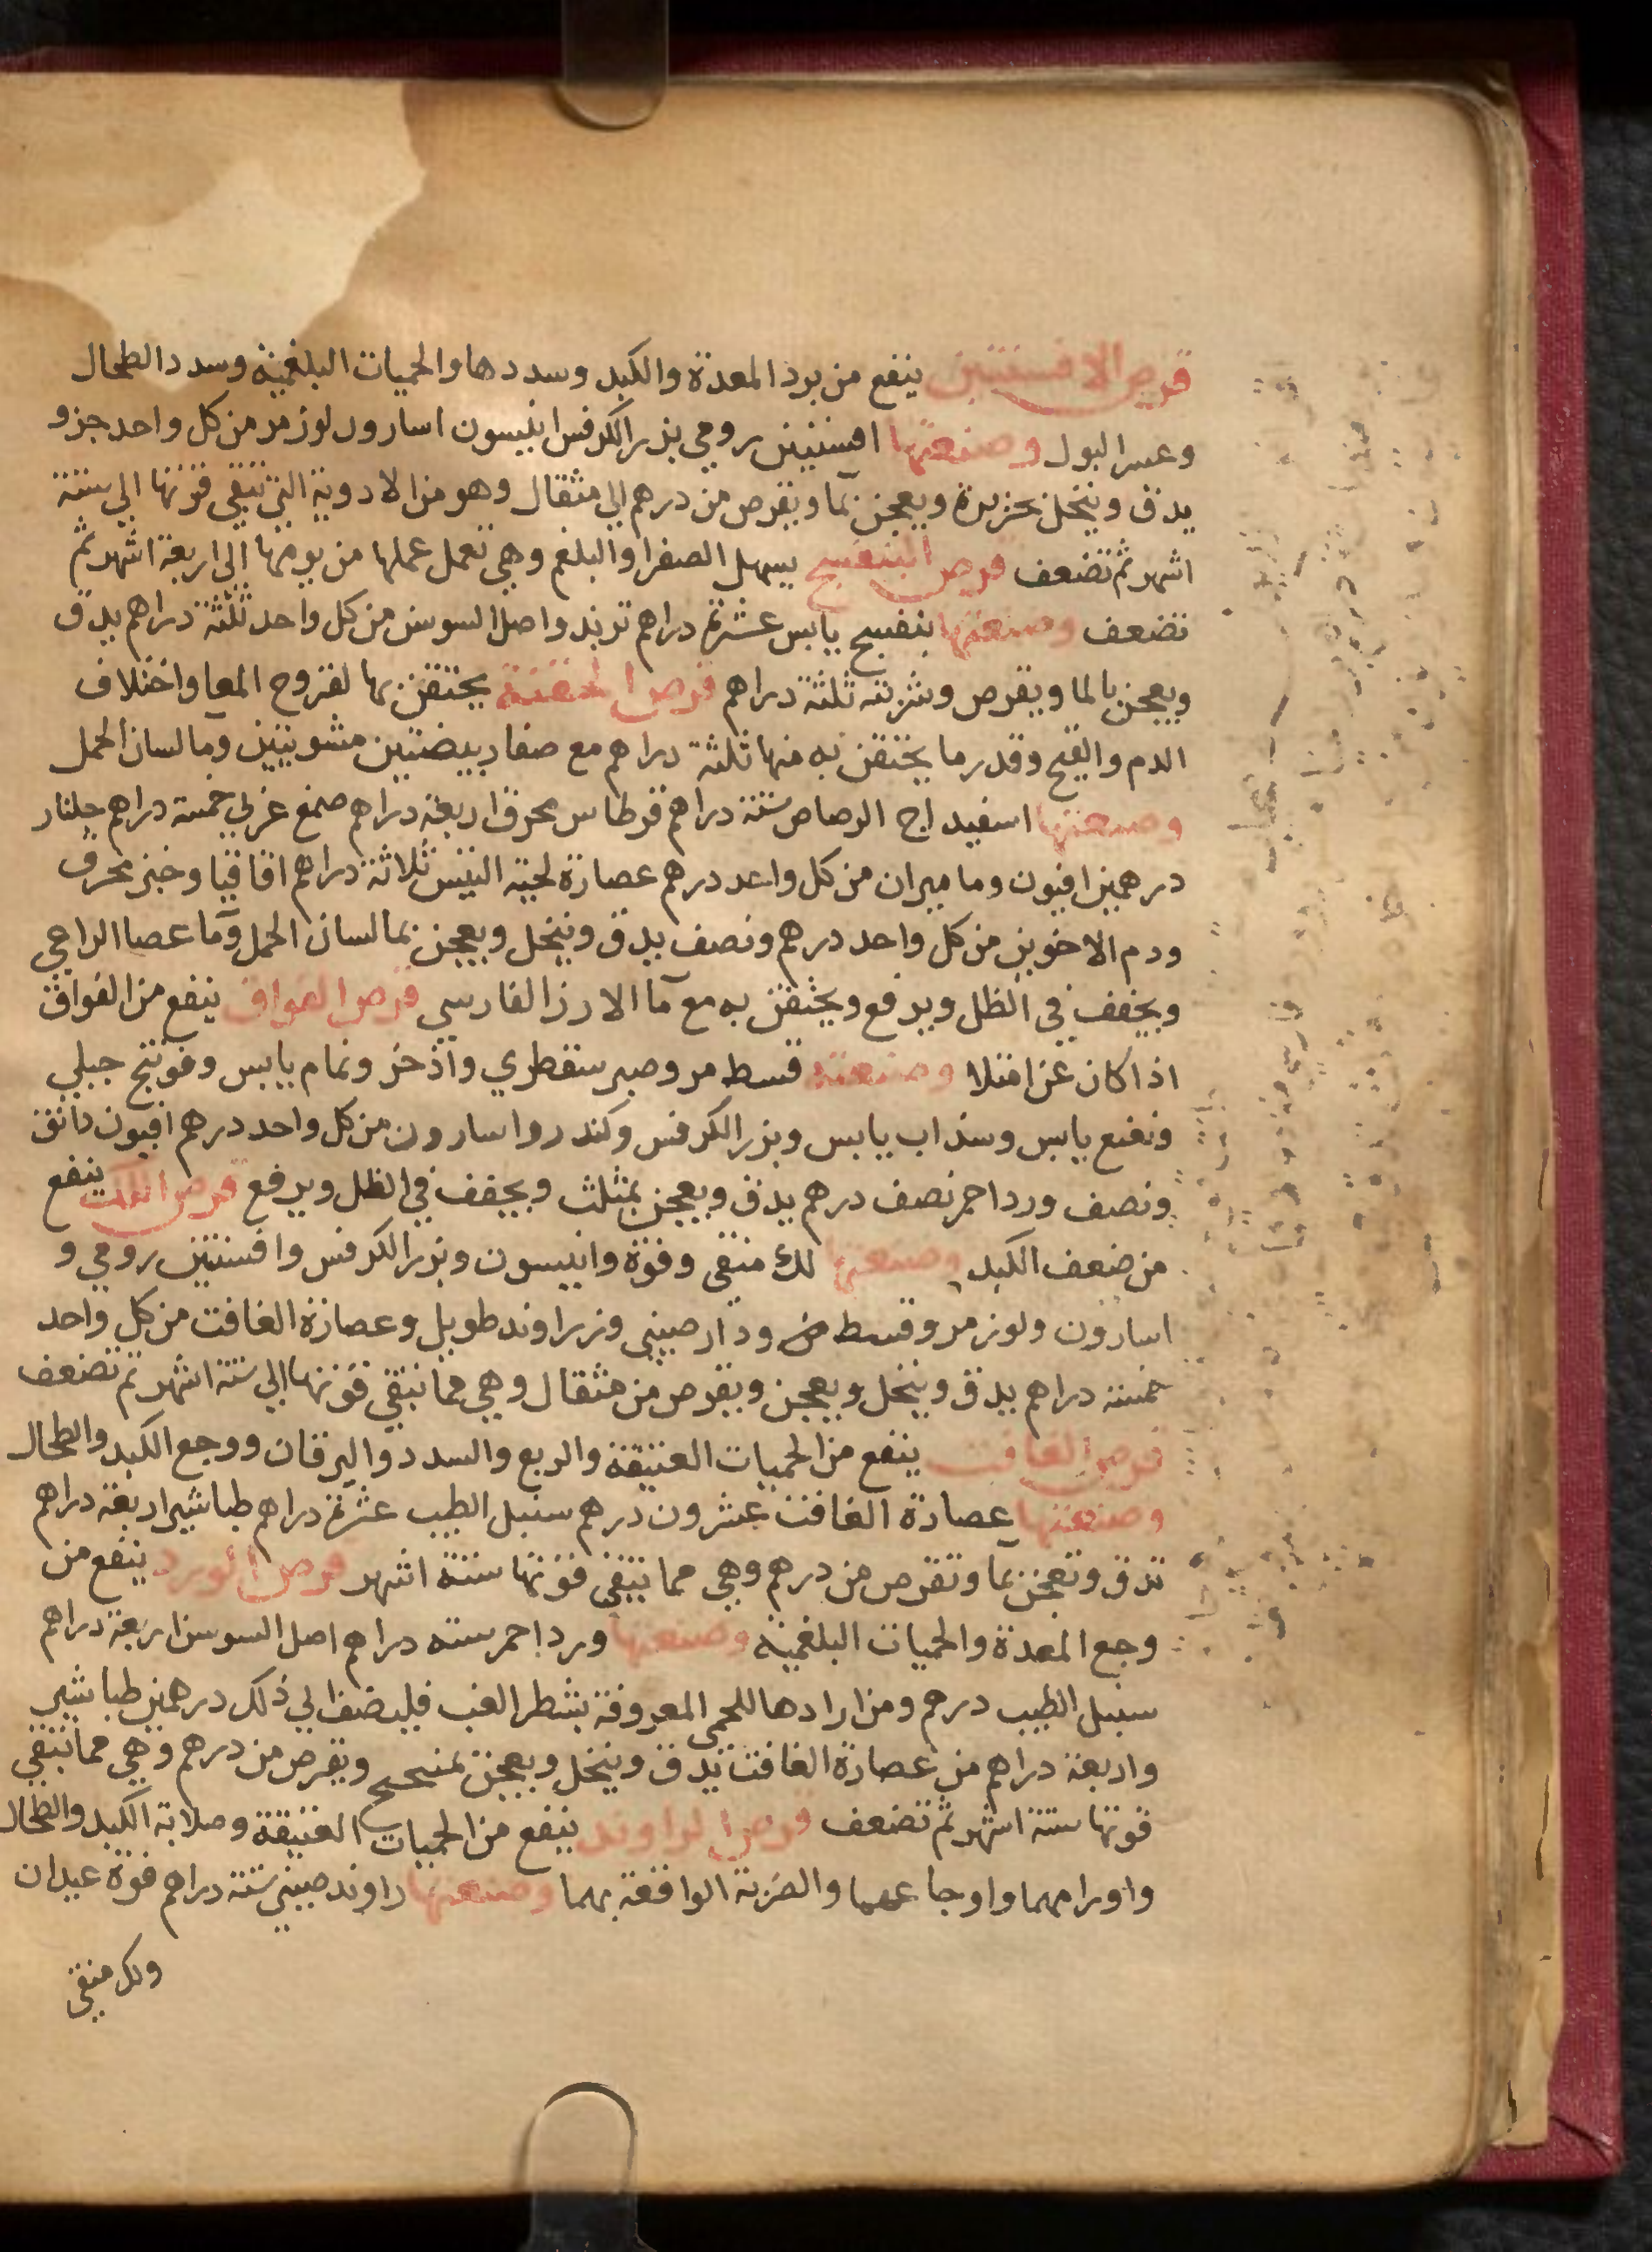 قرص الافسنتين ينفع من برد المعدة والكبد وسددها والحميات البلغمية وسدد الطحال
وعسر البول وصنعتها افسنتين رومي بزر الكرفس انيسون اسارون لوز مر من كل واحد جزو
يدق وينخل بحريرة ويعجن بمآ ويقرص من درهم الي مثقال وهو من الادوية التي تبقي قوتها الي ستة
اشهر ثم تضعف قرص البنفسج يسهل الصفرا والبلغم وهي تعمل عملها من يومها الي اربعة اشهر ثم
تضعف وصنعتها بنفسج يابس عشرة دراهم تربد واصل السوس من كل واحد ثلثة دراهم يدق
ويعجن بالما ويقرص وشربته ثلثة دراهم قرص الحقنة يحتقن بها لقروح المعا واختلاف
الدم والقيح وقدر ما يحتقن به منها ثلثة دراهم مع صفار بيضتين مشويتين وما لسان الحمل
وصنعتها اسفيداج الرصاص ستة دراهم قرطاس محرق اربعة دراهم صمغ عربي خمسة دراهم جلنار
درهمين افيون وماميران من كل واحد درهم عصارة لحية التيس ثلاثة دراهم اقاقيا وخبز محرق
ودم الاخوين من كل واحد درهم ونصف يدق وينخل ويعجن بما لسان الحمل ومآ عصا الراعي
ويجفف في الظل ويرفع ويحتقن به مع مآ الارز الفارسي قرص الفواق ينفع من الفواق
اذا كان عن امتلا وصنعته قسط مر وصبر سقطري واذخر ونمام يابس وفوتنج جبلي
ونعنع يابس وسذاب يابس وبزر الكرفس وكندر واسارون من كل واحد درهم افيون دانق
ونصف ورد احمر نصف درهم يدق ويعجن بمثلث ويجفف في الظل ويرفع قرص اللك ينفع
من ضعف الكبد وصنعتها لك منقي وفوة وانيسون وبزر الكرفس وافسنتين رومي و
اسارون ولوز مر وقسط مر ودارصيني وزراوند طويل وعصارة الغافت من كل واحد
خمسة دراهم يدق وينخل ويعجن ويقرص من مثقال وهي مما تبقي قوتها الي ستة اشهر ثم تضعف
قرص الغافت ينفع من الحميات العتيقة والربع والسدد واليرقان ووجع الكبد والطحال
وصنعتها عصارة الغافت عشرون درهم سنبل الطيب عشرة دراهم طباشير اربعة دراهم
تدق وتعجن بمآ وتقرص من درهم وهي مما تبقي قوتها ستة اشهر قرص الورد ينفع من
وجع المعدة والحميات البلغمية وصنعتها ورد احمر ستة دراهم اصل السوس اربعة دراهم
سنبل الطيب درهم ومن ارادها للحمى المعروفة بشطر الغب فليضف الي ذلك درهمين طباشير
واربعة دراهم من عصارة الغافت تدق وينخل ويعجن ويقرص من درهم وهي مما تبقي
قوتها ستة اشهر ثم تضعف قرص الراوند ينفع من الحميات العتيقة وصلابة الكبد والطحال
واورامهما واوجاعهما والضربة الواقعة بهما وصنعتها راوند صيني ستة دراهم فوة عيدان
ولك منقي